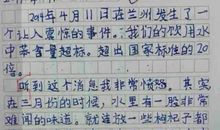 2014年4月11日在兰州发生了一
个让人震惊的事件。我们的饮用水
中苯含量超标。超出国家标准的20
倍。
听到这个消息我非常愤怒。其实
在三月份的时候,水里有一股非常
难闻的味道。就连放一些枸杞子都